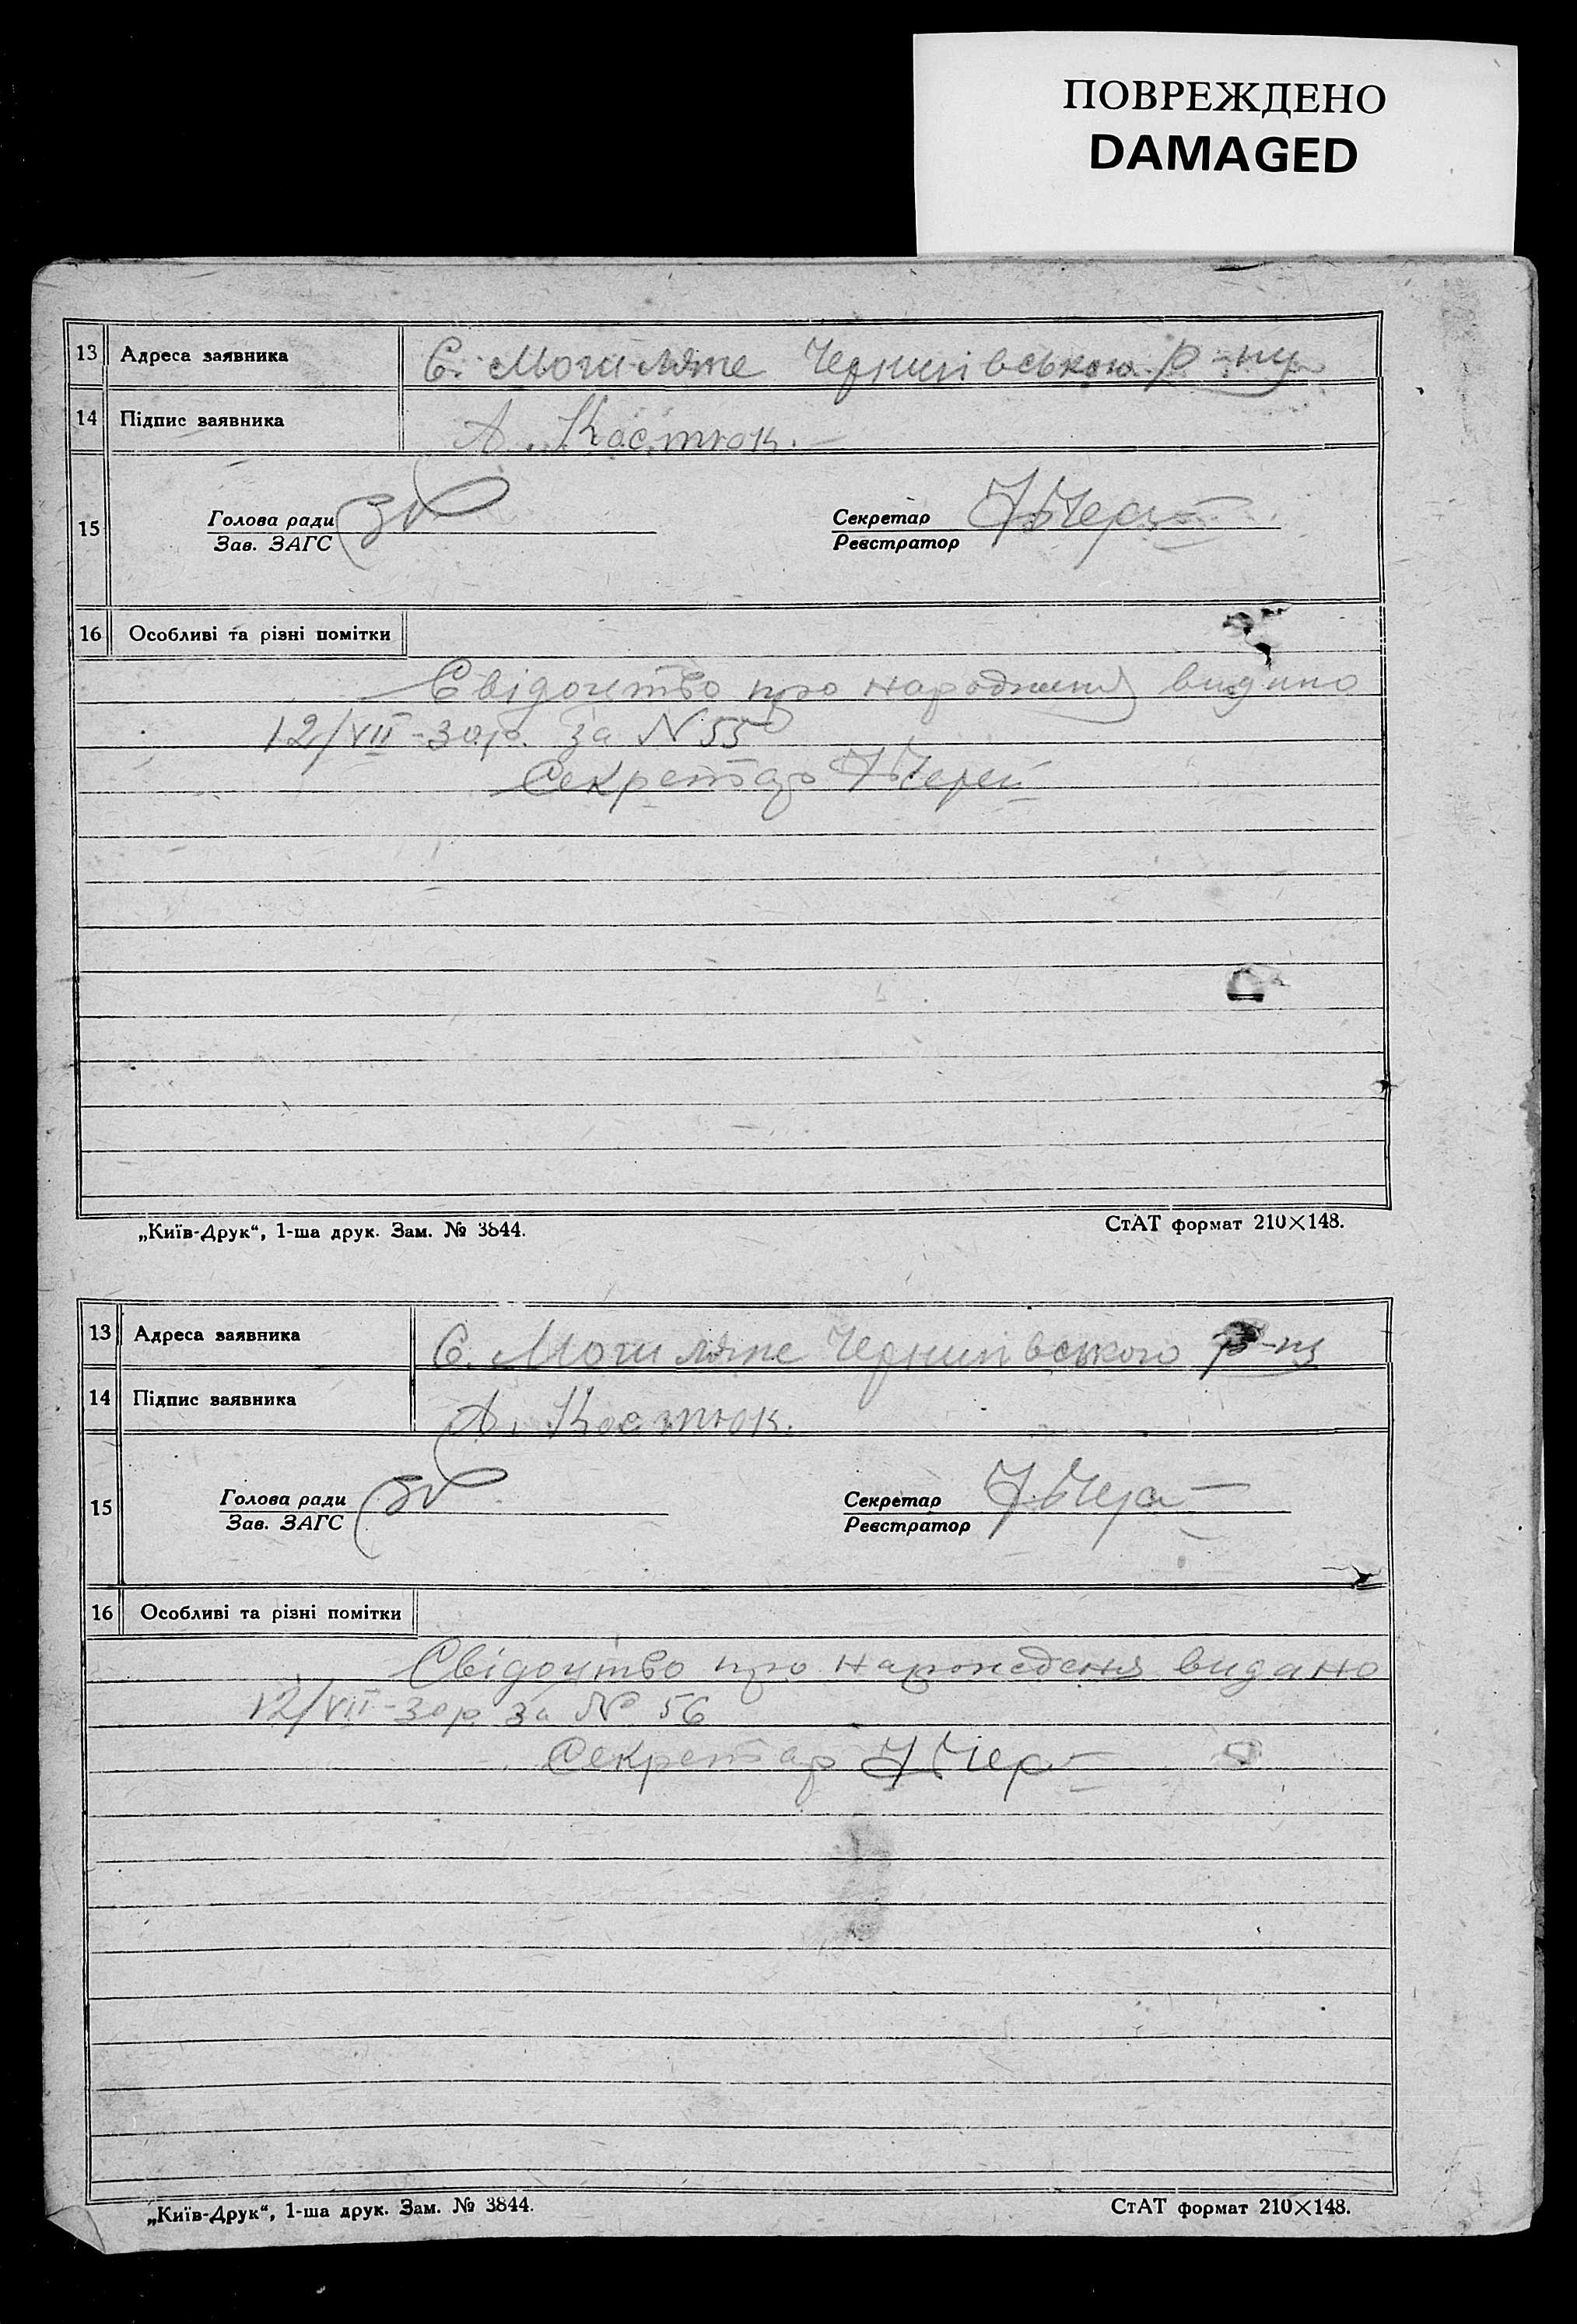 ПОВРЕЖДЕНО
DAMAGED
13 Адреса заявника С. Могиляне р-ну
14 Підпис заявника А. Костюк.
15 Голова ради Секретар
Зав. ЗАГС Реєстратор
16 Особливі та різні помітки
Свідоцтво про народження видано
12/VII-30р. за N 55
Секретар
„Київ-Друк“, 1-ша друк. Зам. № 3844. СтАТ формат 210×148.
13 Адреса заявника С. Могиляне р-ну
14 Підпис заявника А. Костюк.
15 Голова ради Секретар
Зав. ЗАГС Реєстратор
16 Особливі та різні помітки
Свідоцтво про народження видано
12/VII-30р. за № 56
Секретар
„Київ-Друк“, 1-ша друк. Зам. № 3844. СтАТ формат 210×148.